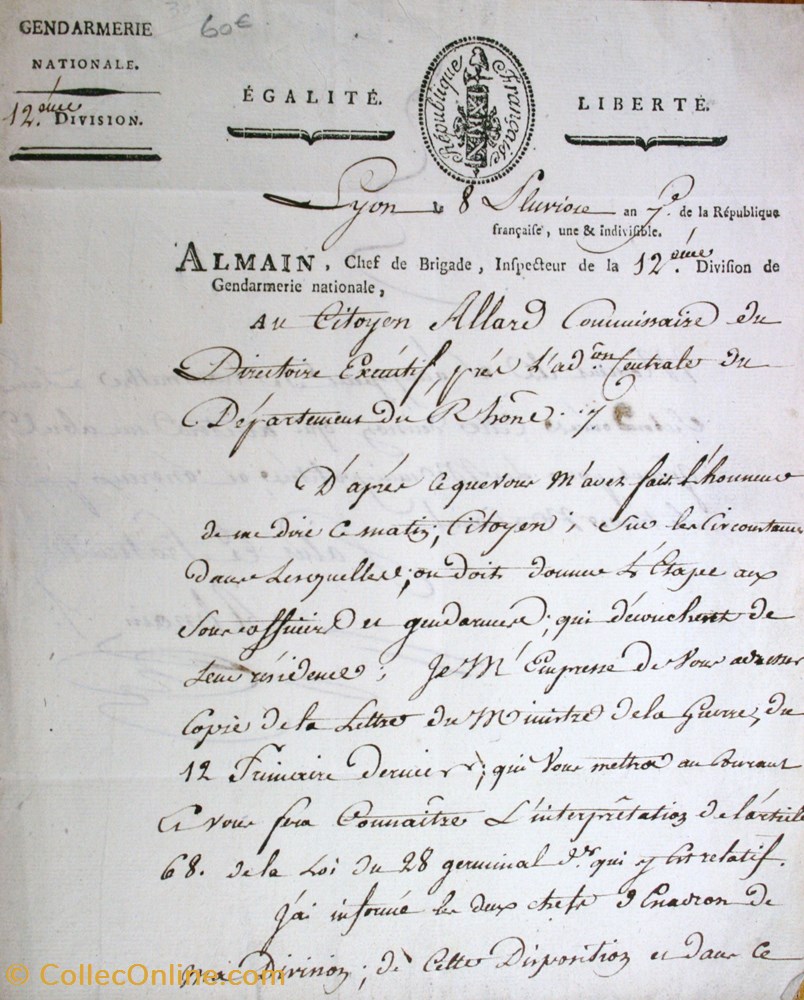 GENDARMERIE
NATIONALE.
12.ème DIVISION.
60€
ÉGALITÉ.
République Française
LIBERTÉ.
Lyon le 8 Pluviose an 7.e de la République
française, une & indivisible.
ALMAIN, Chef de Brigade, Inspecteur de la 12.ème Division de
Gendarmerie nationale,
AU Citoyen Allard Commissaire du
Directoire Exécutif près L'ad.on Centrale du
Département du Rhône
D'après ce que vous M'avez fait L'honneur
de me dire ce matin, Citoyen, Sur les Circonstances
dans Lesquelles, on doit donner L'Etape aux
Sous officiers et gendarmes, qui découchent de
Leur résidence, Je M'Empresse de Vous adresser
Copie de la Lettre du Ministre de la Guerre, du
12 Frimaire dernier, qui Vous mettra au Courant
Et vous fera Connaître L'interprêtation de l'article
68. de la Loi du 28 germinal d.er qui y Est relatif.
J'ai informé les deux chefs d'Escadron de
Ma Division, de Cette Disposition et dans ce
© CollecOnline.com